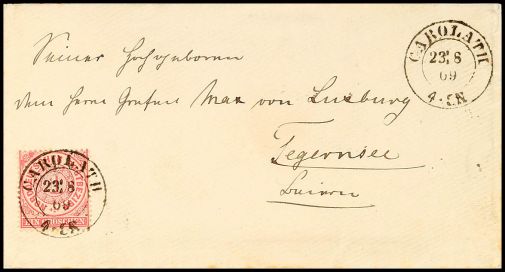 Seiner Hochgeboren
dem Herrn Grafen Max von Luxburg
Tegernsee
Baiern
CAROLATH
23 8
69
4-5N
CAROLATH
23 8
69
4-5N